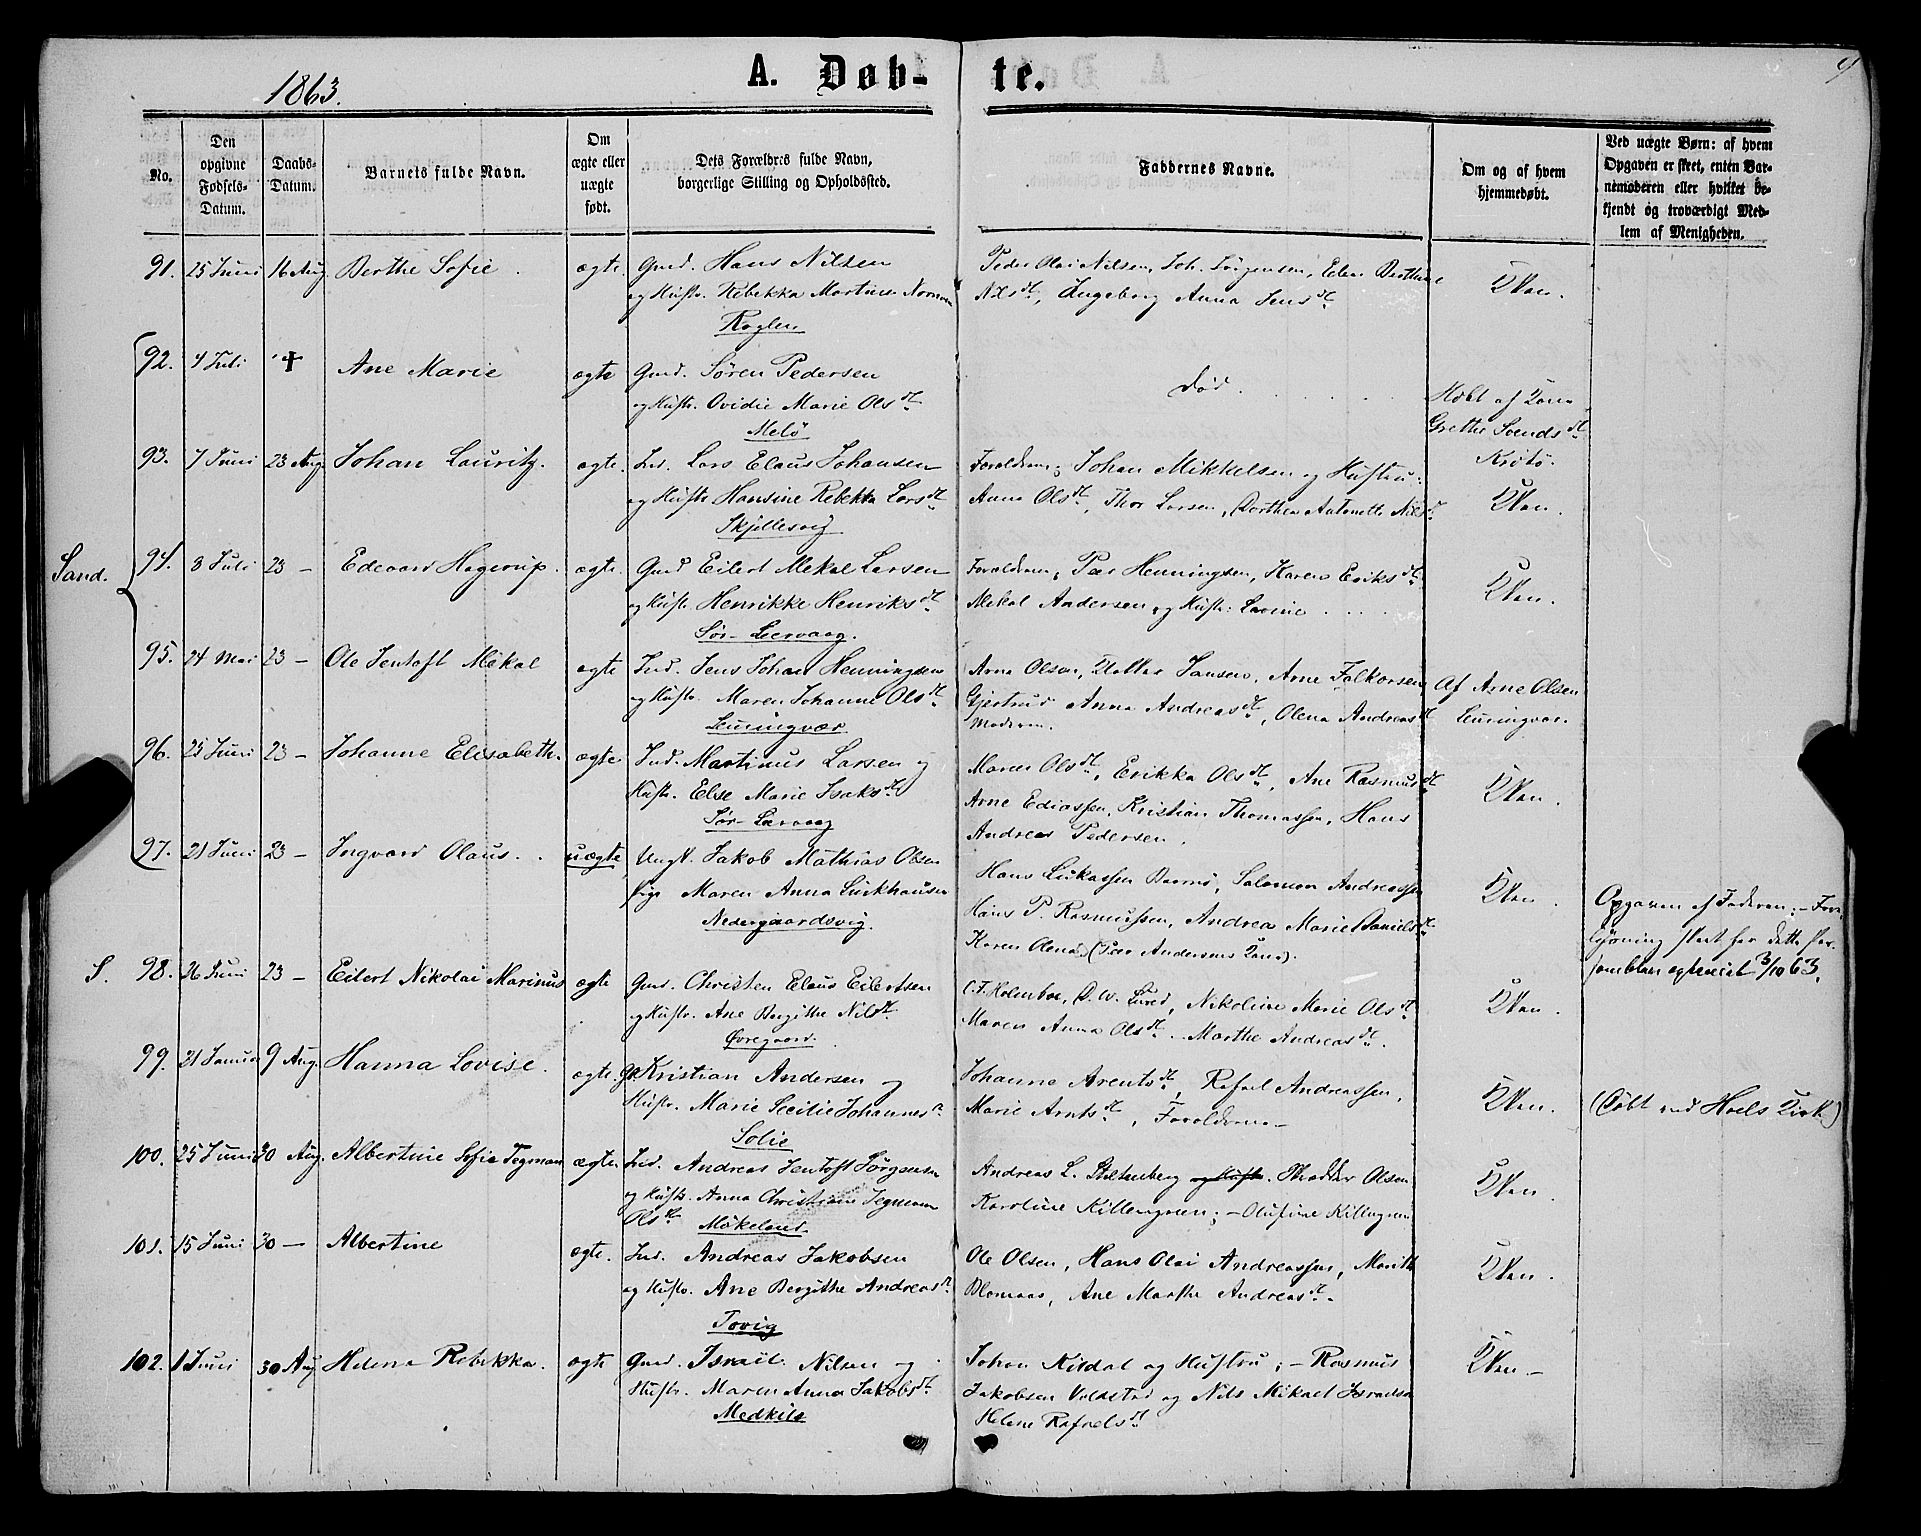 1863.
A. Døb-
te.
9
No.
Den opgivne Fødsels-Datum.
Daabs-Datum.
Barnets fulde Navn.
Om ægte eller uægte født.
Dets Forældres fulde Navn, borgerlige Stilling og Opholdssted.
Faddernes Navne.
Om og af hvem hjemmedøbt.
Ved uægte Børn: af hvem Opgaven er skeet, enten Barnemoderen eller hvilket bekjendt og troværdigt Medlem af Menigheden.
91. 25 Juni 16 Aug Berthe Sofie. ægte. Gmd. Hans Nilsen
og Hustr. Rebekka Martine
Røglen
Peder Olai Nilsen, Joh. Jørgensen, Elen Berthine
Nils dt, Ingeborg Anna Jens dt
92. 4 Juli † Ane Marie ægte Gmd. Søren Pedersen
og Hustr. Ovidie Marie Ols dt
Melö
død.
Hdbt af
Grethe Svends dt
Krøtö.
93. 7 Juni 23 Aug Johan Lauritz. ægte. Ind. Lars Elaus Johansen
og Hustr Hansine Rebekka Lars dt
Skjellesvig
Forældrene; Johan Mikkelsen og Hustru:
Anna Ols dt, Thor Larsen, Dorthea Antonette Nils dt
Sand.
94. 3 Juli 23 — Edevard Hagerup. ægte. Gmd Eilert Mekal Larsen
og Hustr Henrikke Henriks dt
Sør-Leervaag.
Forældrene; Peer Henningsen, Karen Eriks dt
Mekal Andersen og Hustr: Lavine
95. 24 Mai 23 — Ole Jentoft Mekal ægte Ind. Jens Johan Henningsen
og Hustr. Maren Johanne Ols dt
Leuningvær
Arne Olsen, Jansen, Arne Falkorsen
Gjertrud Anna Andreas dt, Olena Andreas dt
Moderen.
Af Arne Olsen
Leuningvær.
96. 25 Juni 23 — Johanne Elisabeth. ægte Ind. Martinus Larsen og
Hustr. Else Marie Isaks dt
Sør-Leervaag
Maren Ols dt, Erikka Ols dt, Ane Rasmus dt
Arne Ediassen, Kristian Thomassen, Hans
Andreas Pedersen.
97. 21 Juni 23 — Ingvard Olaus. uægte Ungk. Jakob Mathias Olsen
Pige Maren Anna Lückhausen
Nedergaardsvig.
Hans Lukassen, Salomon Andreassen
Hans P. Rasmussen, Andrea Marie Daniels dt
Karen Olena (Peer Andersens).
Opgaven af Faderen;
3/10 63.
S. 98. 26 Juni 23 — Eilert Nikolai Marinus ægte Gmd. Christen Elaus Eilertsen
og Hustr. Ane Bergithe Nils dt
Øvregaard.
C. F. Holmboe, O. W. Lund, Nikoline Marie Ols dt
Maren Anna Ols dt. Marthe Andreas dt.
99. 21 Januar 9 Aug. Hanna Lovise. ægte. Kristian Andersen og
Hustr. Marie Secilie Johannes dt
Solie
Johanne Arents dt, Rafael Andreassen,
Marie Arnts dt, Forældrene —
(Døbt ved Hoels Kirk.)
100. 25 Juni 30 Aug. Albertine Sofie Tegman ægte. Ind. Andreas Jentoft Jørgensen
og Hustr. Anna Christiane Tegman
Ols dt Møkeland
Andreas L. Stoltenberg og Hustr. Olsen
Karoline Killengreen; — Olufine Killengreen
101. 15 Juni 30 — Albertine ægte. Ind. Andreas Jakobsen
og Hustr. Ane Bergithe Andreas dt
Tovig
Ole Olsen, Hans Olai Andreassen, Marith
Blomaas, Ane Marthe Andreas dt.
102. 1 Juni 30 Aug Helena Rebekka. ægte Gmd. Israel Nilsen og
Hustr. Maren Anna Jakobs dt.
Medkila
Johan Kildal og Hustru; — Rasmus
Jakobsen Voldstad og Nils Mikael Israelsen
Helene Rafaels dt